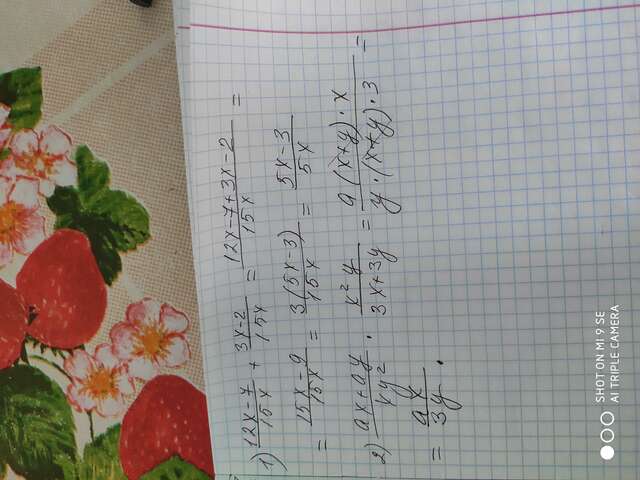 1) (12x-7)/(15x) + (3x-2)/(15x) = (12x-7+3x-2)/(15x) =
= (15x-9)/(15x) = (3(5x-3))/(15x) = (5x-3)/(5x)
2) (ax+ay)/(xy²) · (x²y)/(3x+3y) = (a(x+y)·x)/(y·(x+y)·3) =
= (ax)/(3y).
SHOT ON MI 9 SE
AI TRIPLE CAMERA